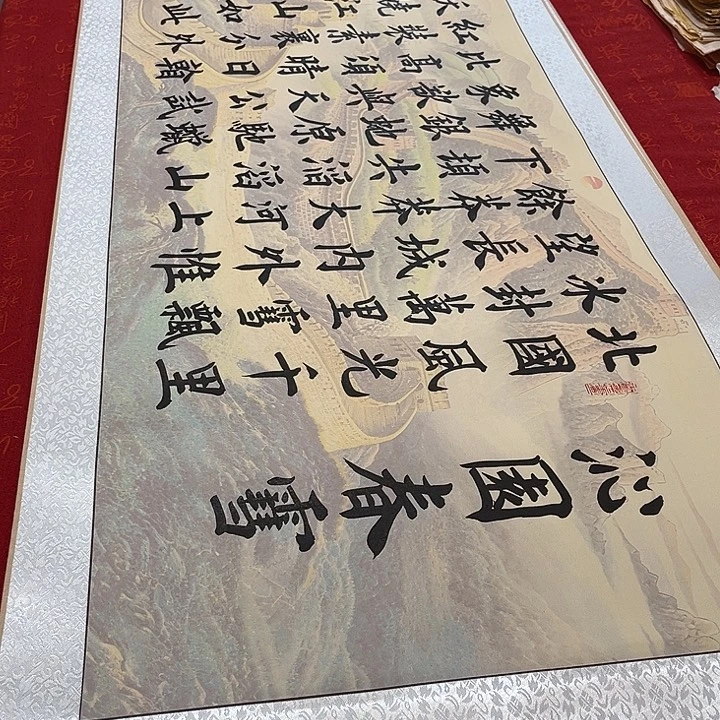 沁園春雪
北國風光千里
冰封萬里雪飄
望長城内外惟
餘莽莽大河上
下頓失滔滔山
舞銀蛇原馳蠟
象欲與天公試
比高須晴日看
紅裝素裹分外
嬈江山如此